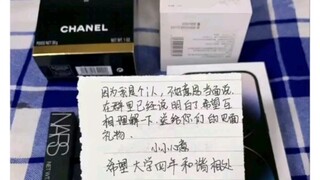 CHANEL
NARS
因为我是个i人，不好意思当面说
在群里已经说明白了，希望互
相理解一下，送给你们的见面
礼物。
小小心意
希望大学四年和谐相处